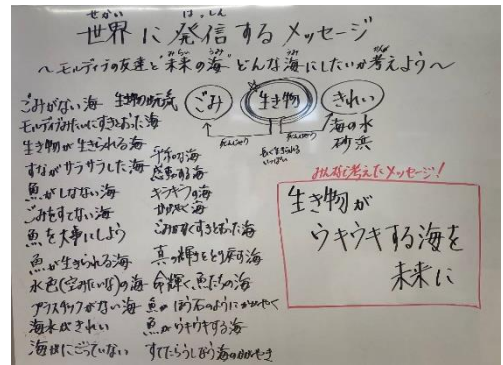 せかい はっしん
世界に発信するメッセージ
みらい うみ
～モルディブの友達と"未来の海"どんな海にしたいか考えよう～
ごみがない海
モルディブみたいにすきとおった海
生き物が生きられる海
すながサラサラした海
魚がしなない海
ごみをすてない海
魚を大事にしよう
魚が生きられる海
水色(空みたいな)の海
プラスチックがない海
海水がきれい
海がにごっていない
生き物が元気
平和な海
感動する海
キラキラの海
かがやく海
ごみがなくすきとおった海
真の輝きをとり戻す海
命輝く、魚たちの海
魚がほう石のようにかがやく
魚がウキウキする海
すてたらうしなう海のかがやき
ごみ
生き物
きれい
海の水
砂浜
長く生きられる
いっぱい
みんなで考えたメッセージ!
生き物が
ウキウキする海を
未来に